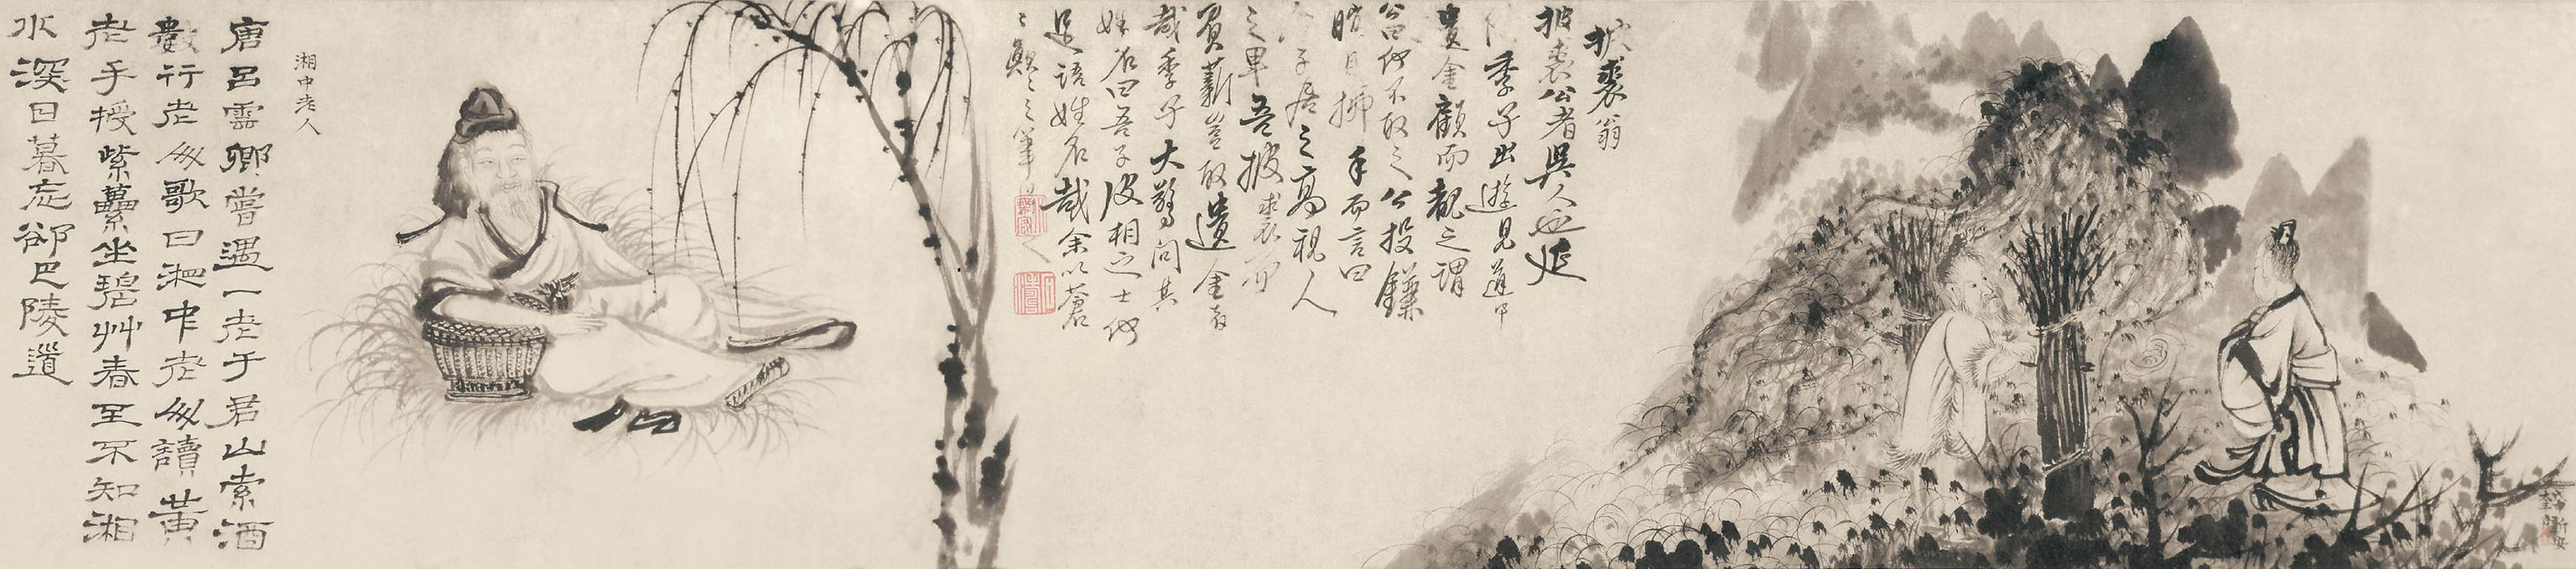 披裘翁
披裘公者吳人也延
陵季子出遊見道中
遺金顧而覩之謂
公曰何不取之公投鎌
瞋目拂手而言曰
何子居之高視人
之卑吾披裘而
負薪豈取遺金者
哉季子大驚問其
姓名曰吾子皮相之士何
足語姓名哉余以蒼
湘中老人
唐呂雲卿嘗遇一老于君山索酒
數行老人歌曰湘中老人讀黃
老手授紫藟坐碧艸春至不知湘
水深日暮忘卻巴陵道